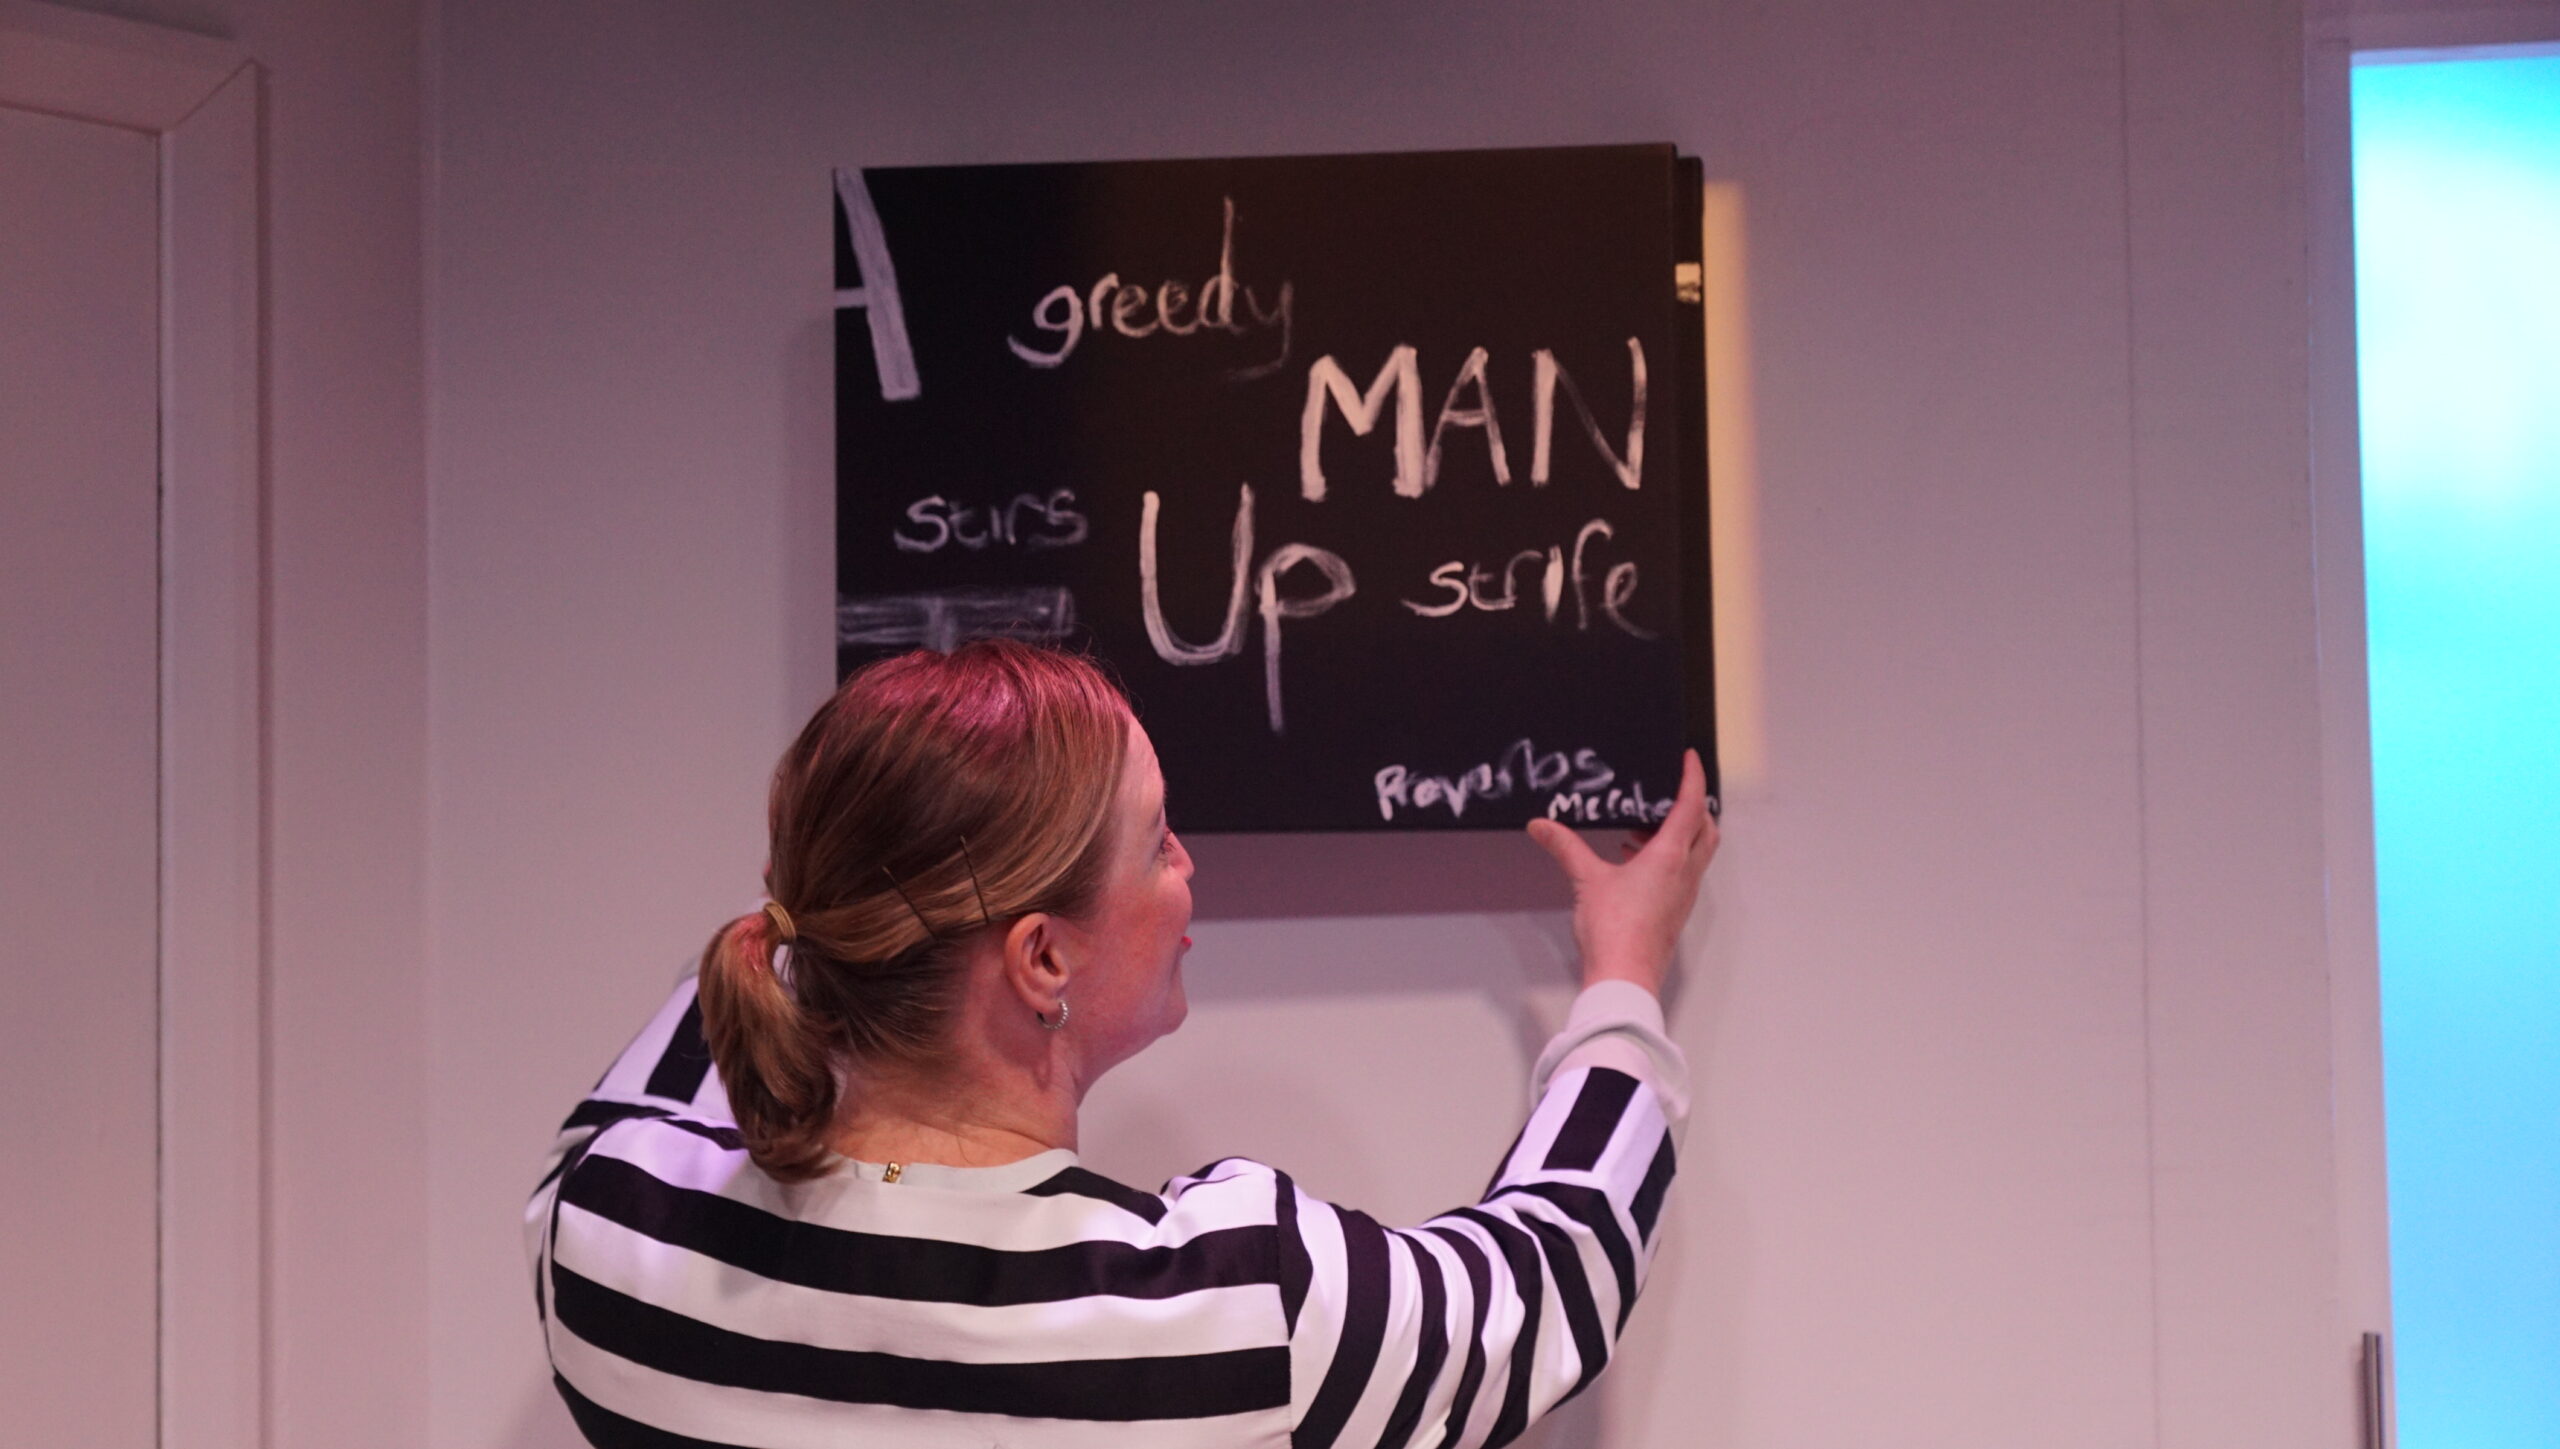 A greedy
MAN
stirs Up strife
Proverbs